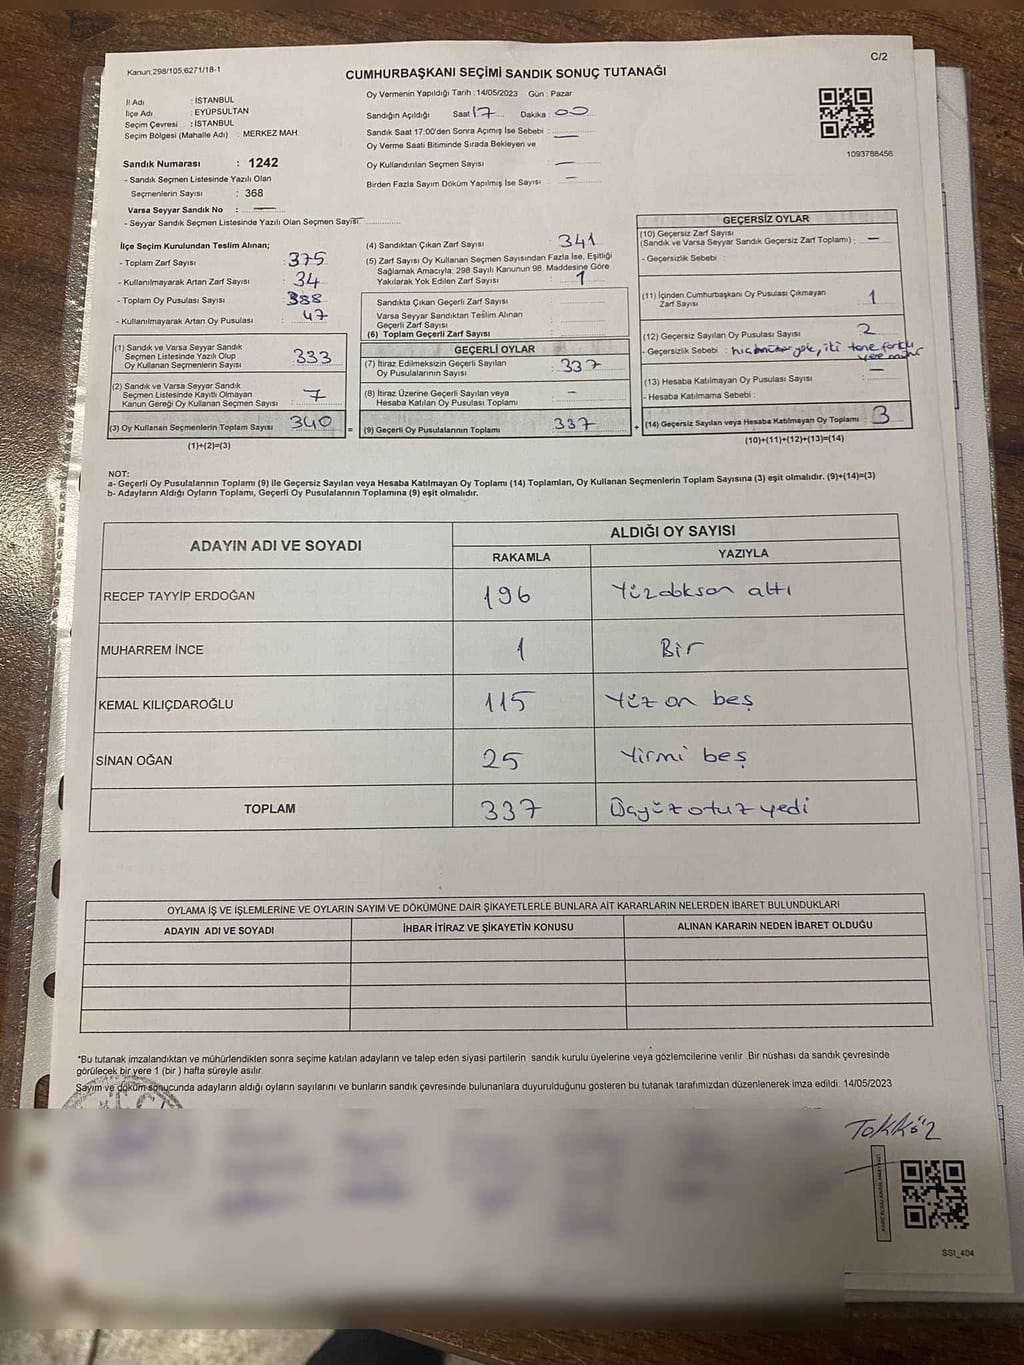 Kanun;298/105,6271/18-1
C/2
CUMHURBAŞKANI SEÇİMİ SANDIK SONUÇ TUTANAĞI
İl Adı : İSTANBUL
İlçe Adı : EYÜPSULTAN
Seçim Çevresi : İSTANBUL
Seçim Bölgesi (Mahalle Adı) : MERKEZ MAH.
Sandık Numarası : 1242
- Sandık Seçmen Listesinde Yazılı Olan
Seçmenlerin Sayısı : 368
Varsa Seyyar Sandık No : —
- Seyyar Sandık Seçmen Listesinde Yazılı Olan Seçmen Sayısı —
Oy Vermenin Yapıldığı Tarih : 14/05/2023 Gün : Pazar
Sandığın Açıldığı Saat 17 Dakika : 00
Sandık Saat 17:00'den Sonra Açımış İse Sebebi : —
Oy Verme Saati Bitiminde Sırada Bekleyen ve
Oy Kullandırılan Seçmen Sayısı —
Birden Fazla Sayım Döküm Yapılmış İse Sayısı : —
1093788456
İlçe Seçim Kurulundan Teslim Alınan;
- Toplam Zarf Sayısı : 375
- Kullanılmayarak Artan Zarf Sayısı : 34
- Toplam Oy Pusulası Sayısı : 388
- Kullanılmayarak Artan Oy Pusulası : 47
(1) Sandık ve Varsa Seyyar Sandık
Seçmen Listesinde Yazılı Olup
Oy Kullanan Seçmenlerin Sayısı : 333
(2) Sandık ve Varsa Seyyar Sandık
Seçmen Listesinde Kayıtlı Olmayan
Kanun Gereği Oy Kullanan Seçmen Sayısı : 7
(3) Oy Kullanan Seçmenlerin Toplam Sayısı 340
(1)+(2)=(3)
(4) Sandıktan Çıkan Zarf Sayısı : 341
(5) Zarf Sayısı Oy Kullanan Seçmen Sayısından Fazla İse, Eşitliği
Sağlamak Amacıyla; 298 Sayılı Kanunun 98. Maddesine Göre
Yakılarak Yok Edilen Zarf Sayısı : 1
Sandıkta Çıkan Geçerli Zarf Sayısı :
Varsa Seyyar Sandıktan Teslim Alınan
Geçerli Zarf Sayısı :
(6) Toplam Geçerli Zarf Sayısı
=
GEÇERLİ OYLAR
(7) İtiraz Edilmeksizin Geçerli Sayılan
Oy Pusulalarının Sayısı : 337
(8) İtiraz Üzerine Geçerli Sayılan veya
Hesaba Katılan Oy Pusulası Toplamı : —
(9) Geçerli Oy Pusulalarının Toplamı : 337
+
GEÇERSİZ OYLAR
(10) Geçersiz Zarf Sayısı
(Sandık ve Varsa Seyyar Sandık Geçersiz Zarf Toplamı) : —
- Geçersizlik Sebebi :
(11) İçinden Cumhurbaşkanı Oy Pusulası Çıkmayan
Zarf Sayısı : 1
(12) Geçersiz Sayılan Oy Pusulası Sayısı : 2
- Geçersizlik Sebebi : yok, iki tane farklı
(13) Hesaba Katılmayan Oy Pusulası Sayısı : —
- Hesaba Katılmama Sebebi :
(14) Geçersiz Sayılan veya Hesaba Katılmayan Oy Toplamı : 3
(10)+(11)+(12)+(13)=(14)
NOT:
a- Geçerli Oy Pusulalarının Toplamı (9) ile Geçersiz Sayılan veya Hesaba Katılmayan Oy Toplamı (14) Toplamları, Oy Kullanan Seçmenlerin Toplam Sayısına (3) eşit olmalıdır. (9)+(14)=(3)
b- Adayların Aldığı Oyların Toplamı, Geçerli Oy Pusulalarının Toplamına (9) eşit olmalıdır.
ADAYIN ADI VE SOYADI
ALDIĞI OY SAYISI
RAKAMLA YAZIYLA
RECEP TAYYİP ERDOĞAN 196 Yüzdoksan altı
MUHARREM İNCE 1 Bir
KEMAL KILIÇDAROĞLU 115 Yüz on beş
SİNAN OĞAN 25 Yirmi beş
TOPLAM 337 Üçyüz otuz yedi
OYLAMA İŞ VE İŞLEMLERİNE VE OYLARIN SAYIM VE DÖKÜMÜNE DAİR ŞİKAYETLERLE BUNLARA AİT KARARLARIN NELERDEN İBARET BULUNDUKLARI
ADAYIN ADI VE SOYADI İHBAR İTİRAZ VE ŞİKAYETİN KONUSU ALINAN KARARIN NEDEN İBARET OLDUĞU
*Bu tutanak imzalandıktan ve mühürlendikten sonra seçime katılan adayların ve talep eden siyasi partilerin sandık kurulu üyelerine veya gözlemcilerine verilir. Bir nüshası da sandık çevresinde
görülecek bir yere 1 (bir ) hafta süreyle asılır.
Sayım ve döküm sonucunda adayların aldığı oyların sayılarını ve bunların sandık çevresinde bulunanlara duyurulduğunu gösteren bu tutanak tarafımızdan düzenlenerek imza edildi. 14/05/2023
SSI_404